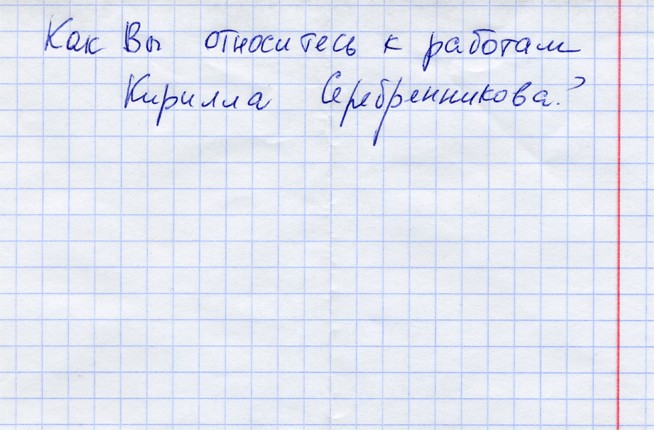 Как Вы относитесь к работам
Кирилла Серебренникова?